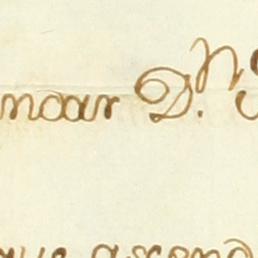 noar D.n
que ascend